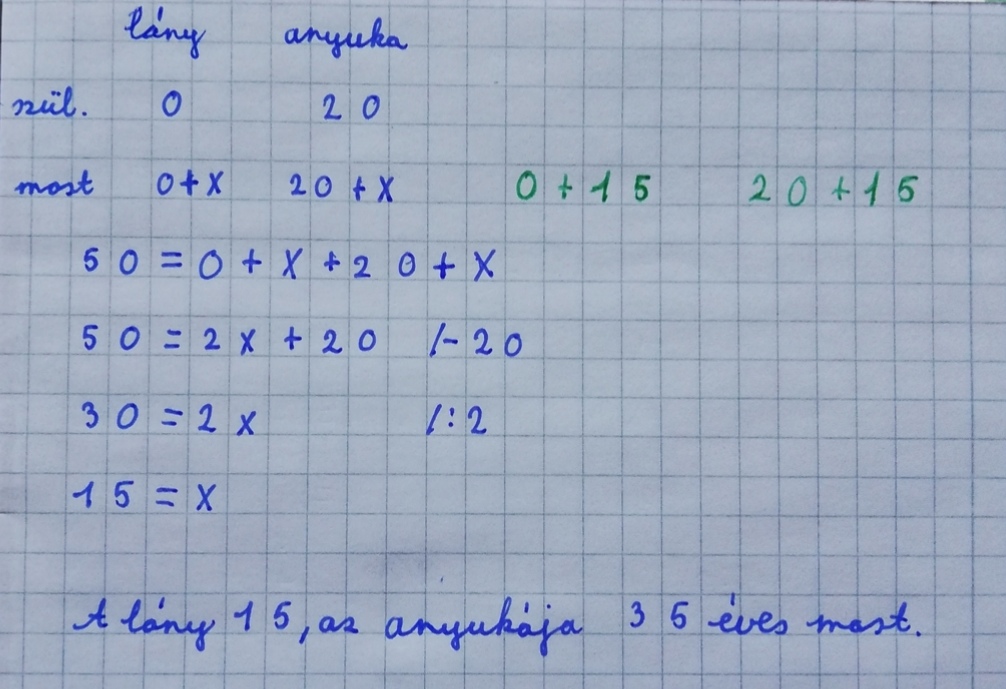 lány anyuka
szül. 0 20
most 0+x 20+x 0+15 20+15
50=0+x+20+x
50=2x+20 /-20
30=2x /:2
15=x
A lány 15, az anyukája 35 éves most.